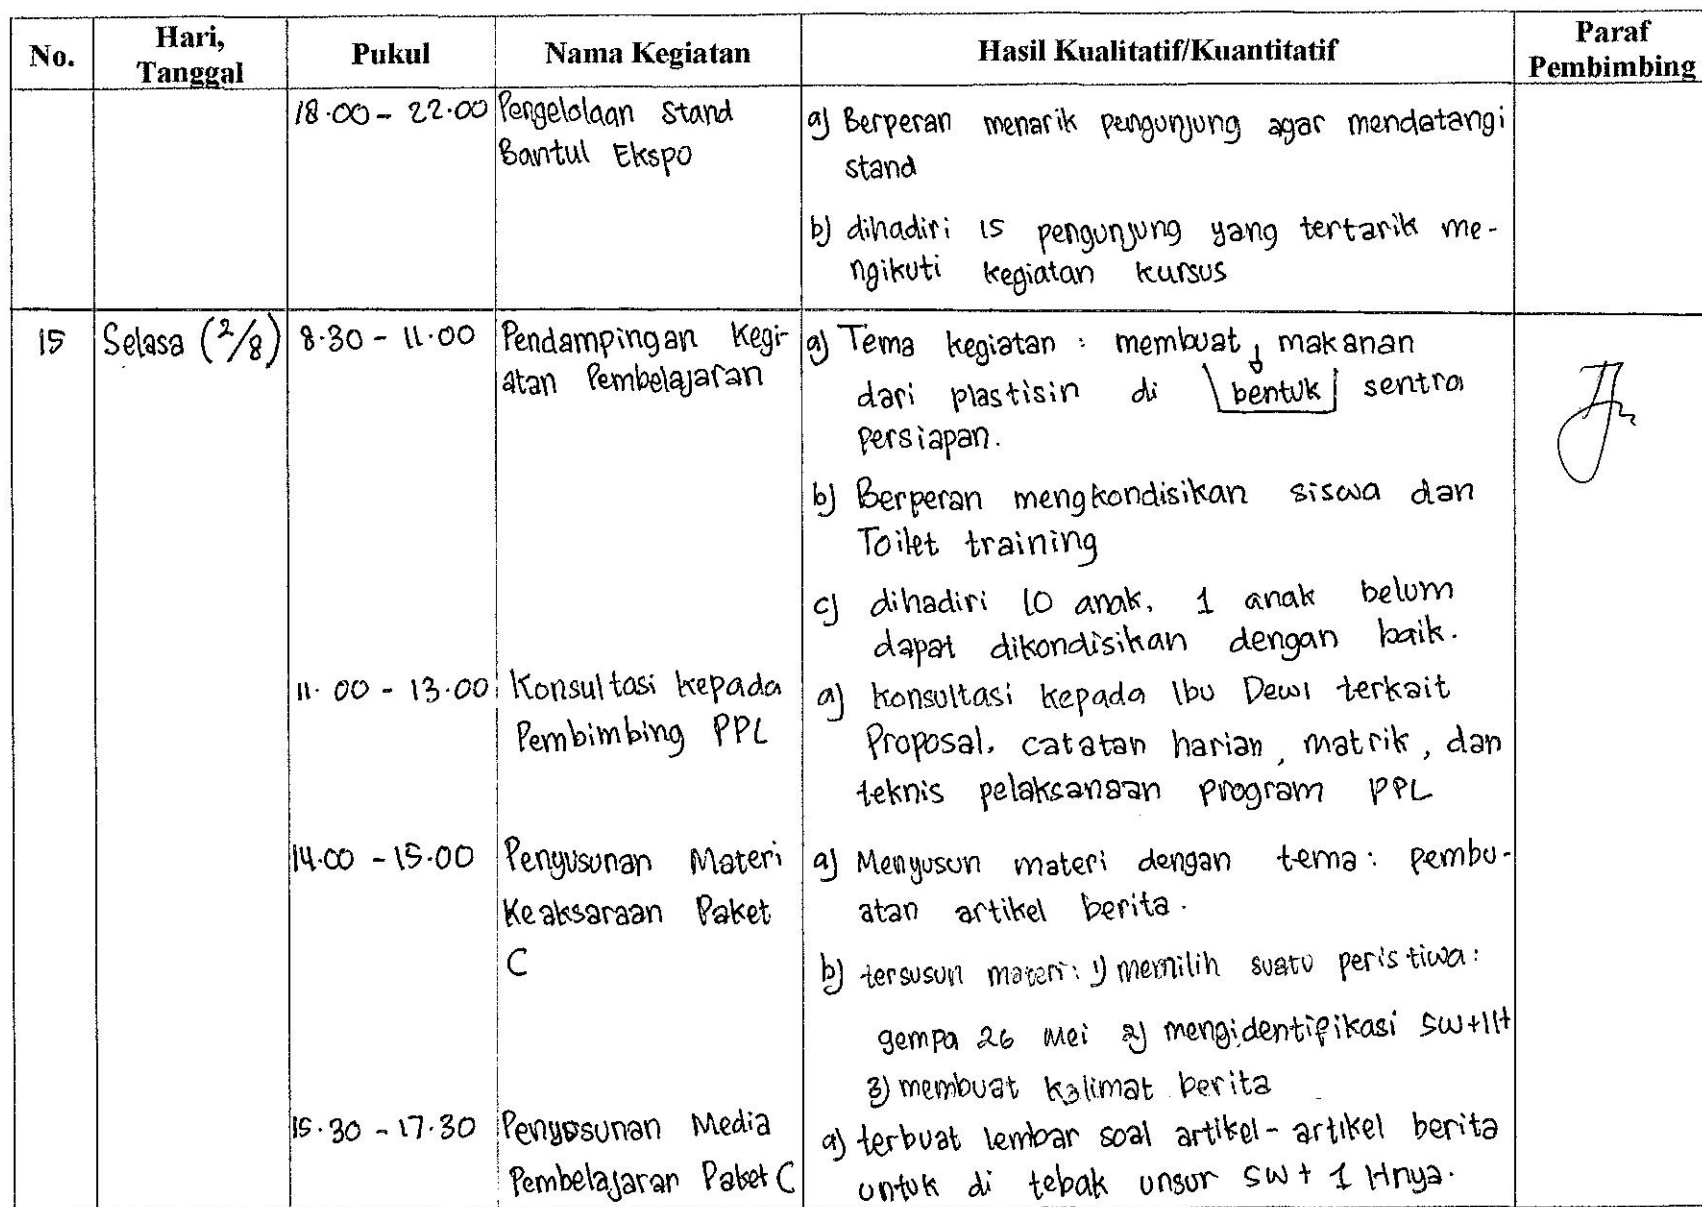 No.
Hari,
Tanggal
Pukul
Nama Kegiatan
Hasil Kualitatif/Kuantitatif
Paraf
Pembimbing
18.00 - 22.00
Pengelolaan Stand
Bantul Ekspo
a) Berperan menarik pengunjung agar mendatangi
stand
b) dihadiri 15 pengunjung yang tertarik me-
ngikuti kegiatan kursus
15
Selasa (2/8)
8.30 - 11.00
Pendampingan Kegi-
atan Pembelajaran
a) Tema kegiatan : membuat makanan
dari plastisin di bentuk sentra
persiapan.
b) Berperan mengkondisikan siswa dan
Toilet training
c) dihadiri 10 anak. 1 anak belum
dapat dikondisikan dengan baik.
11.00 - 13.00
Konsultasi kepada
Pembimbing PPL
a) konsultasi kepada Ibu Dewi terkait
Proposal, catatan harian, matrik, dan
teknis pelaksanaan program PPL
14.00 - 15.00
Penyusunan Materi
Keaksaraan Paket
C
a) Menyusun materi dengan tema: pembu-
atan artikel berita.
b) tersusun materi: 1) memilih suatu peristiwa:
gempa 26 Mei 2) mengidentifikasi 5W+1H
3) membuat kalimat berita
15.30 - 17.30
Penyusunan Media
Pembelajaran Paket C
a) terbuat lembar soal artikel-artikel berita
untuk di tebak unsur 5W+ 1 Hnya.